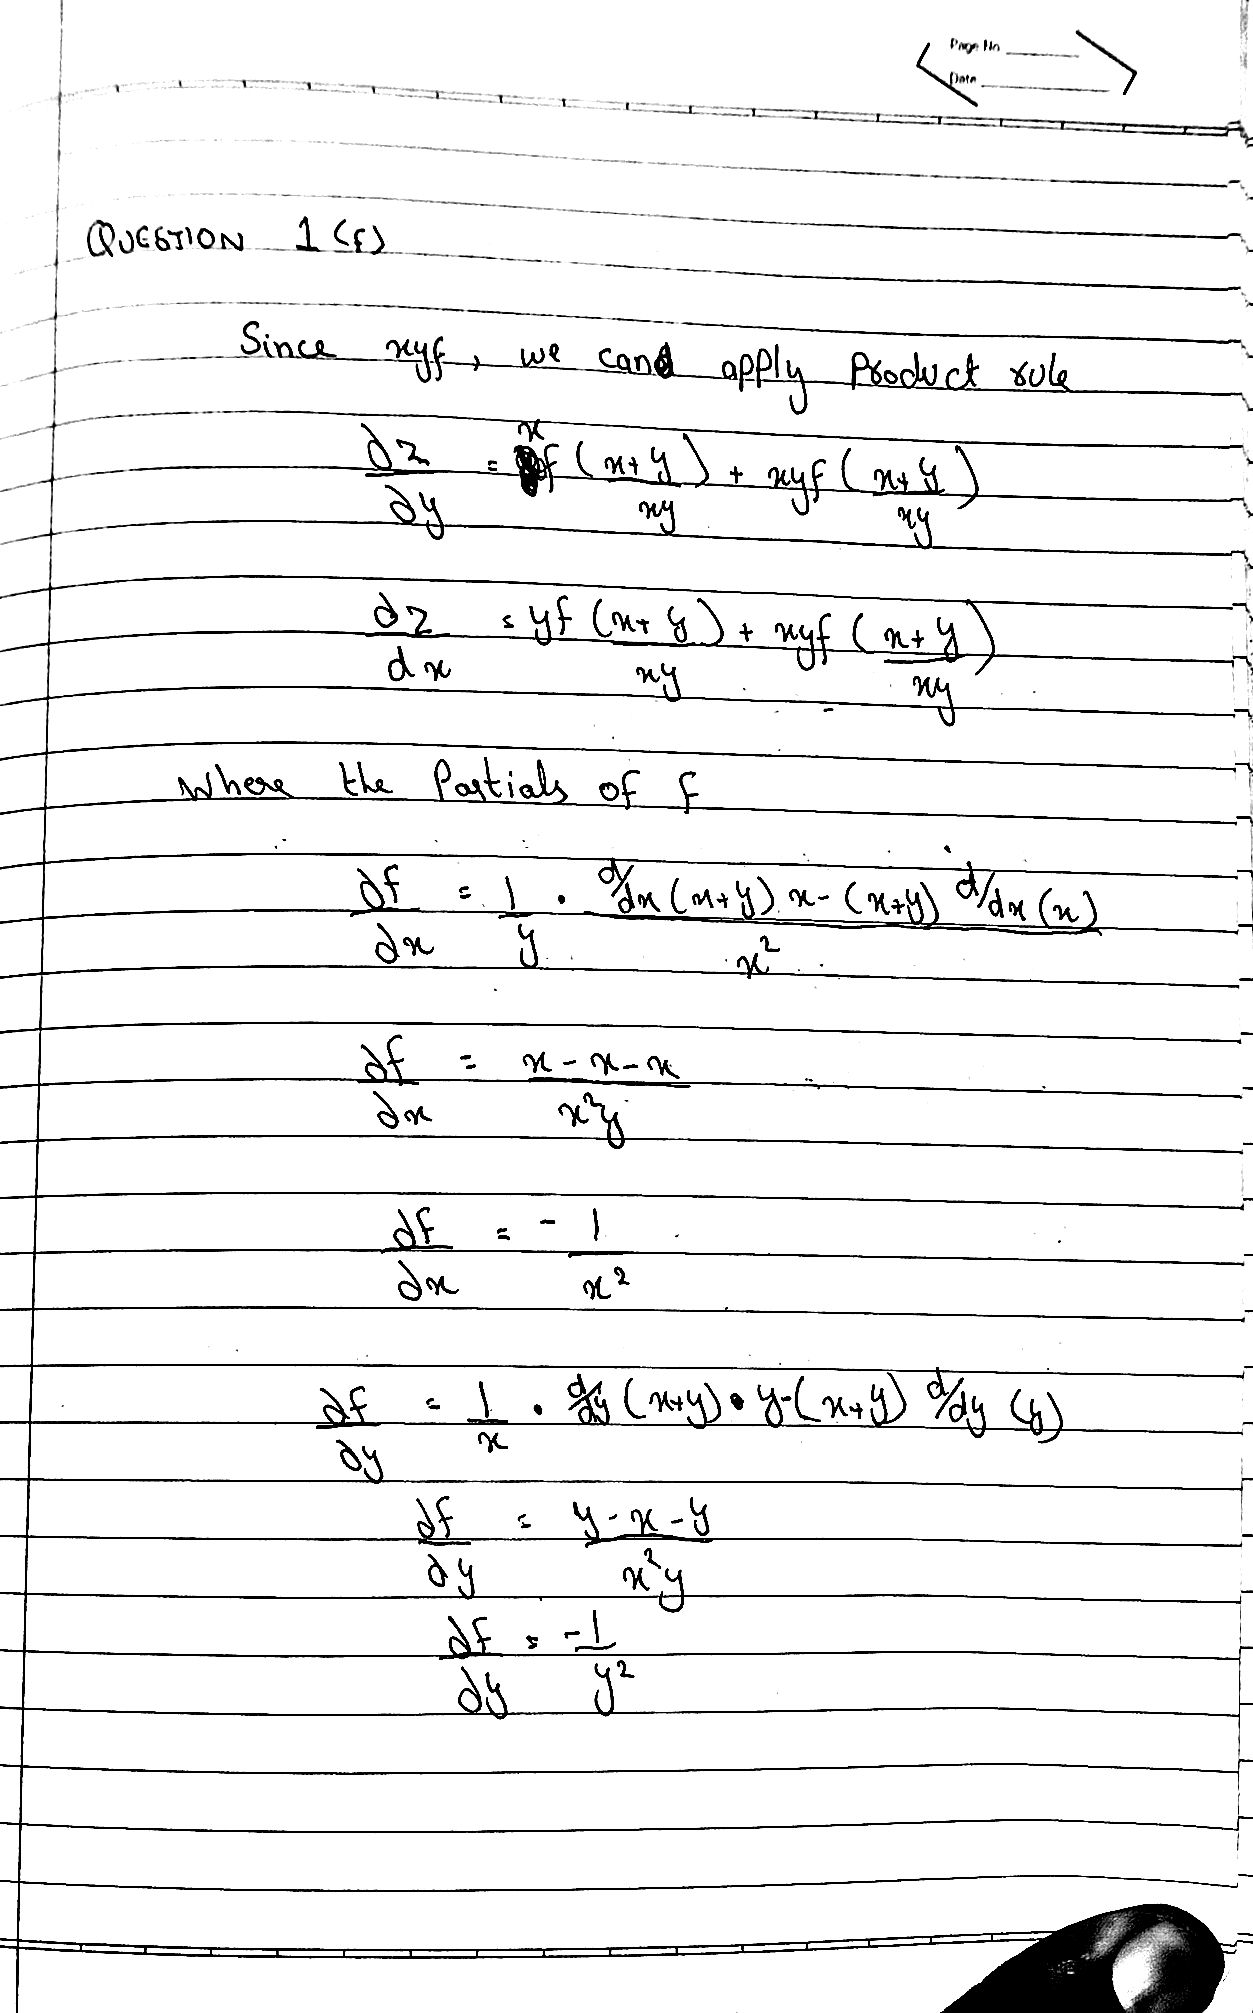 Page No
Date
QUESTION 1 (f)
Since xyf, we can apply Product rule
∂z/∂y = xf ((x+y)/xy) + xyf ((x+y)/xy)
∂z/dx = yf ((x+y)/xy) + xyf ((x+y)/xy)
Where the Partials of f
∂f/∂x = 1/y · (d/dx (x+y) x - (x+y) d/dx (x))/x²
∂f/∂x = (x - x - x)/x²y
∂f/∂x = - 1/x²
∂f/∂y = 1/x · d/dy (x+y) • y - (x+y) d/dy (y)
∂f/∂y = (y - x - y)/x²y
∂f/∂y = -1/y²